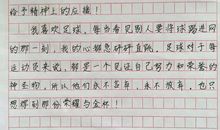 给予精神上的应援！
我喜欢足球，每当看见别人要将球踢进网
的那一刻，我的心都怦怦直跳，足球对于每一
运动员来说，都是一个见证自己努力和荣誉的
神圣物，所以他们永不言弃，永不放弃，也只
想得到那份荣耀与金杯！